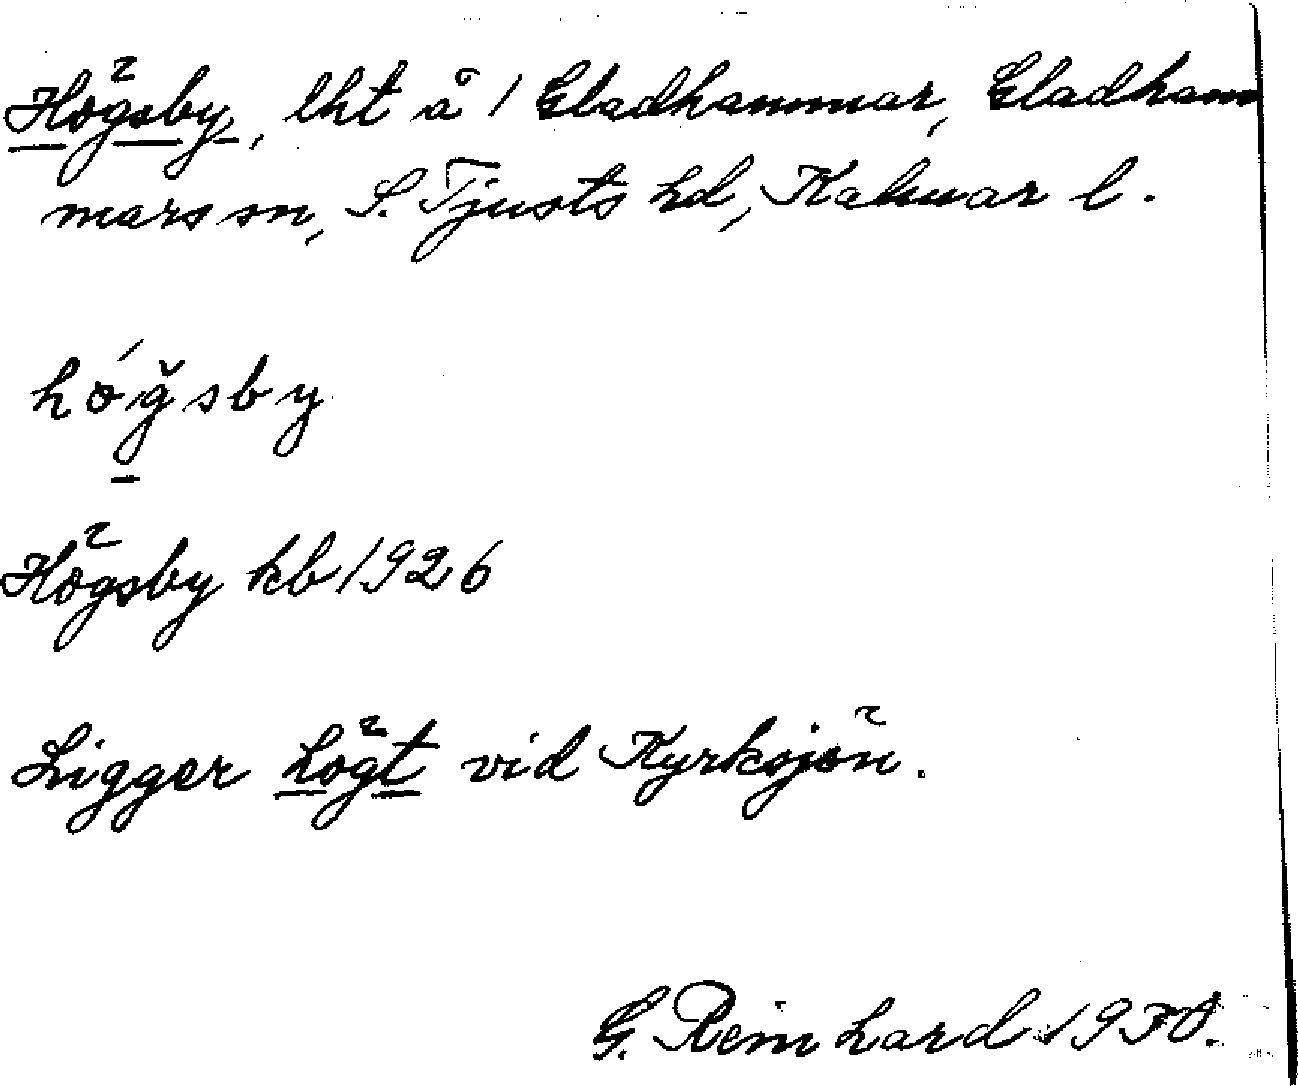 Högsby, lht å 1 Gladhammar, Gladham
mars sn, S. Tjusts hd, Kalmar l.
hö́ǧsby
Högsby kb 1926
Ligger högt vid Kyrksjön.
G. Reinhard